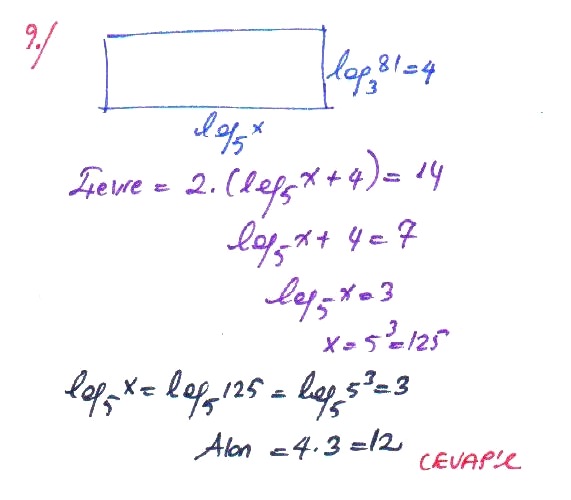 9./
log₃81=4
log₅x
Çevre = 2.(log₅x+4)= 14
log₅x+ 4=7
log₅x=3
x=5³=125
log₅x= log₅125 = log₅5³=3
Alan =4.3=12
CEVAP:C